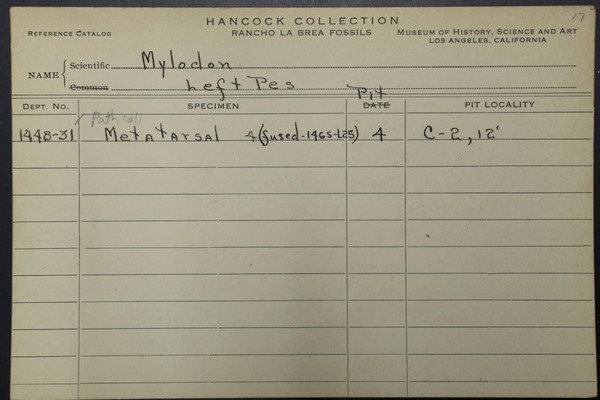 17
HANCOCK COLLECTION
REFERENCE CATALOG RANCHO LA BREA FOSSILS MUSEUM OF HISTORY, SCIENCE AND ART
LOS ANGELES, CALIFORNIA
NAME { Scientific Mylodon
Common Left Pes
Pit
DEPT. NO. SPECIMEN DATE PIT LOCALITY
Path coll
1448-31 Metatarsal 4 (fused-1465-L25) 4 C-2, 12'